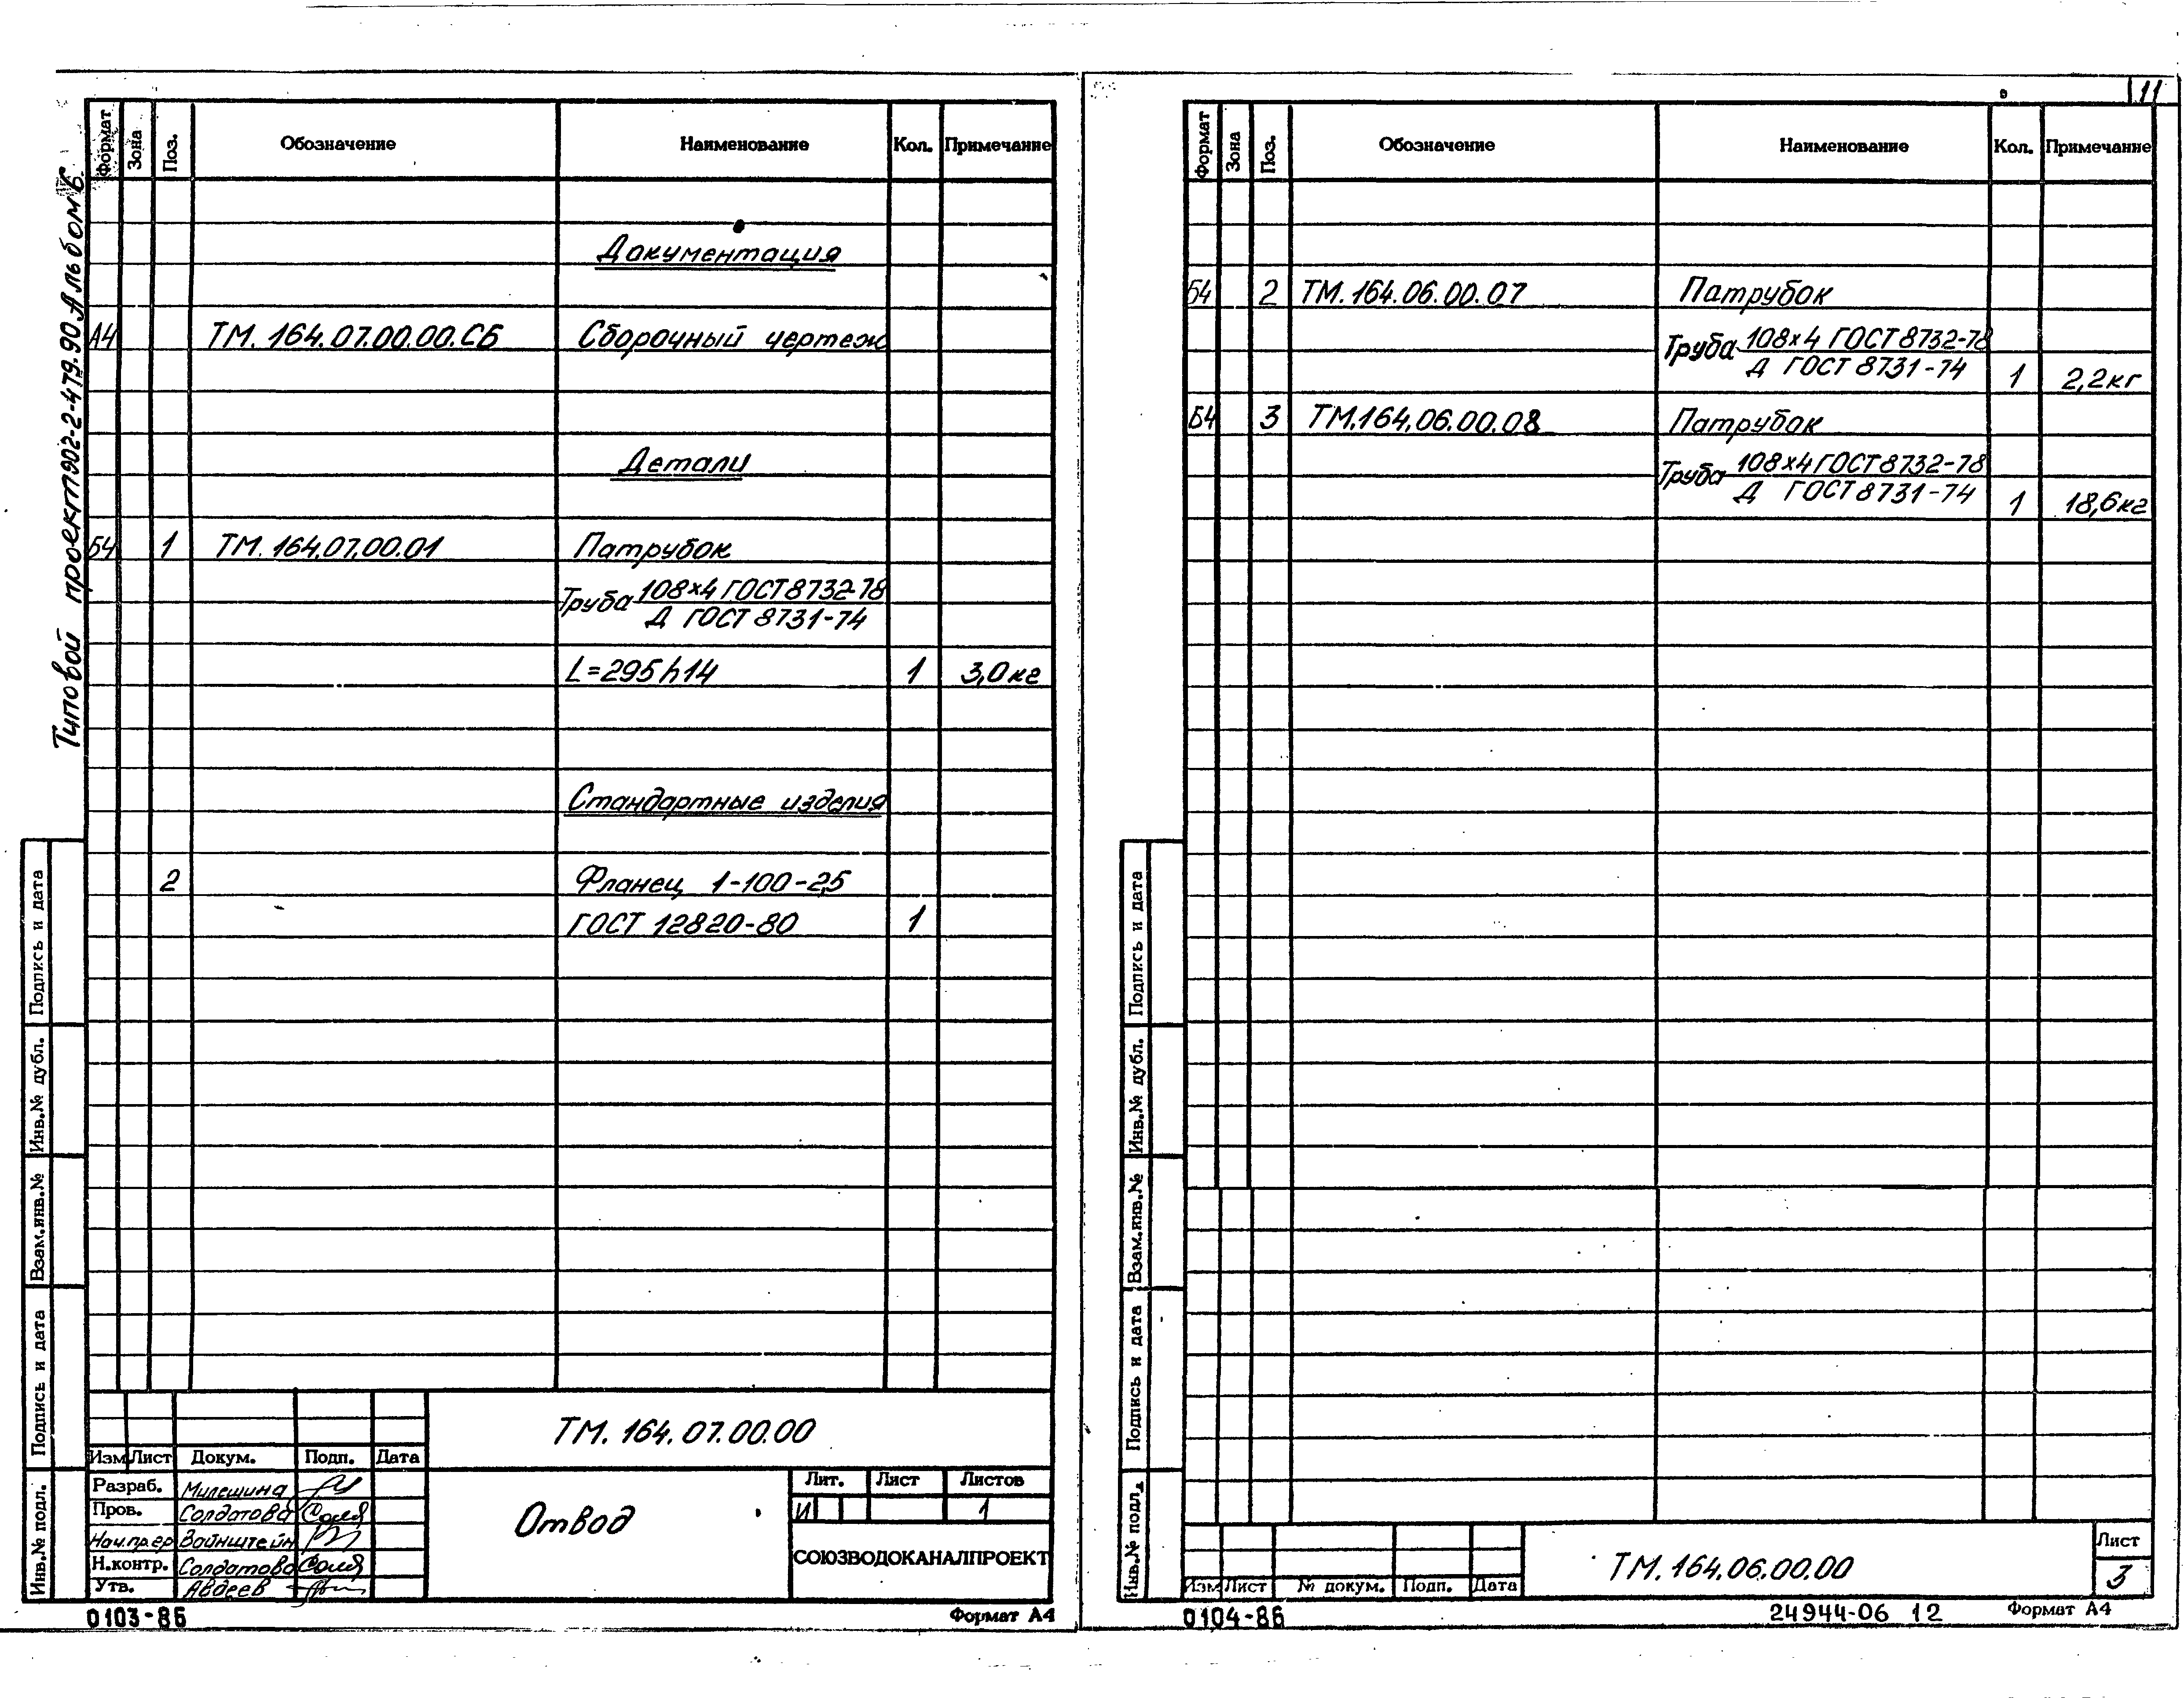 Типовой проект 902-2-479.90 Альбом 6
Формат Зона Поз. Обозначение Наименование Кол. Примечание
Документация
А4 ТМ. 164.07.00.00.СБ Сборочный чертеж
Детали
Б4 1 ТМ. 164.07.00.01 Патрубок
Труба 108×4 ГОСТ 8732-78
Д ГОСТ 8731-74
L=295h14 1 3,0кг
Стандартные изделия
2 Фланец 1-100-2,5
ГОСТ 12820-80 1
Подпись и дата
Инв.№ дубл.
Взам.инв.№
Подпись и дата
Инв.№ подл.
ТМ. 164.07.00.00
Изм Лист Докум. Подп. Дата
Разраб. Милешина
Пров. Солдатова
Нач.пр.ер Вайнштейн
Н.контр. Солдатова
Утв. Авдеев
Отвод
Лит. Лист Листов
И 1
СОЮЗВОДОКАНАЛПРОЕКТ
0103-86 Формат А4
11
Формат Зона Поз. Обозначение Наименование Кол. Примечание
Б4 2 ТМ.164.06.00.07 Патрубок
Труба 108×4 ГОСТ 8732-78
Д ГОСТ 8731-74 1 2,2кг
Б4 3 ТМ.164.06.00.08 Патрубок
Труба 108×4 ГОСТ 8732-78
Д ГОСТ 8731-74 1 18,6кг
Подпись и дата
Инв.№ дубл.
Взам.инв.№
Подпись и дата
Инв.№ подл.
Изм Лист № докум. Подп. Дата
ТМ.164.06.00.00
Лист
3
0104-86 24944-06 12 Формат А4